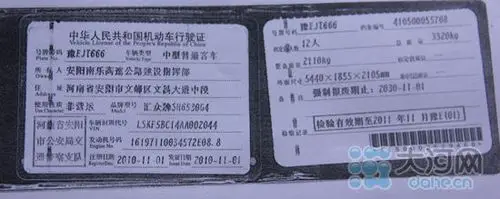 中华人民共和国机动车行驶证
Vehicle License of the People's Republic of China
号牌号码 豫EJT666 车辆类型 中型普通客车
所有人 安阳南乐高速公路建设指挥部
住址 河南省安阳市文峰区文昌大道中段
使用性质 非营运 品牌型号
河南省安阳市公安局交通警察支队
车辆识别代号 LSKF5BC14AA002044
发动机号码
注册日期 2010-11-01 发证日期 2010-11-01
号牌号码 豫EJT666 档案编号 410500055708
12人 3320kg
2110kg
5440×1855×2105mm
强制报废期止: 2030-11-01
检验记录
检验有效期至2011年11月 豫E(01)
大河网
dahe.cn